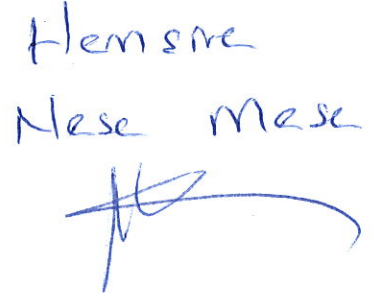 Hemsire
Nese Mese